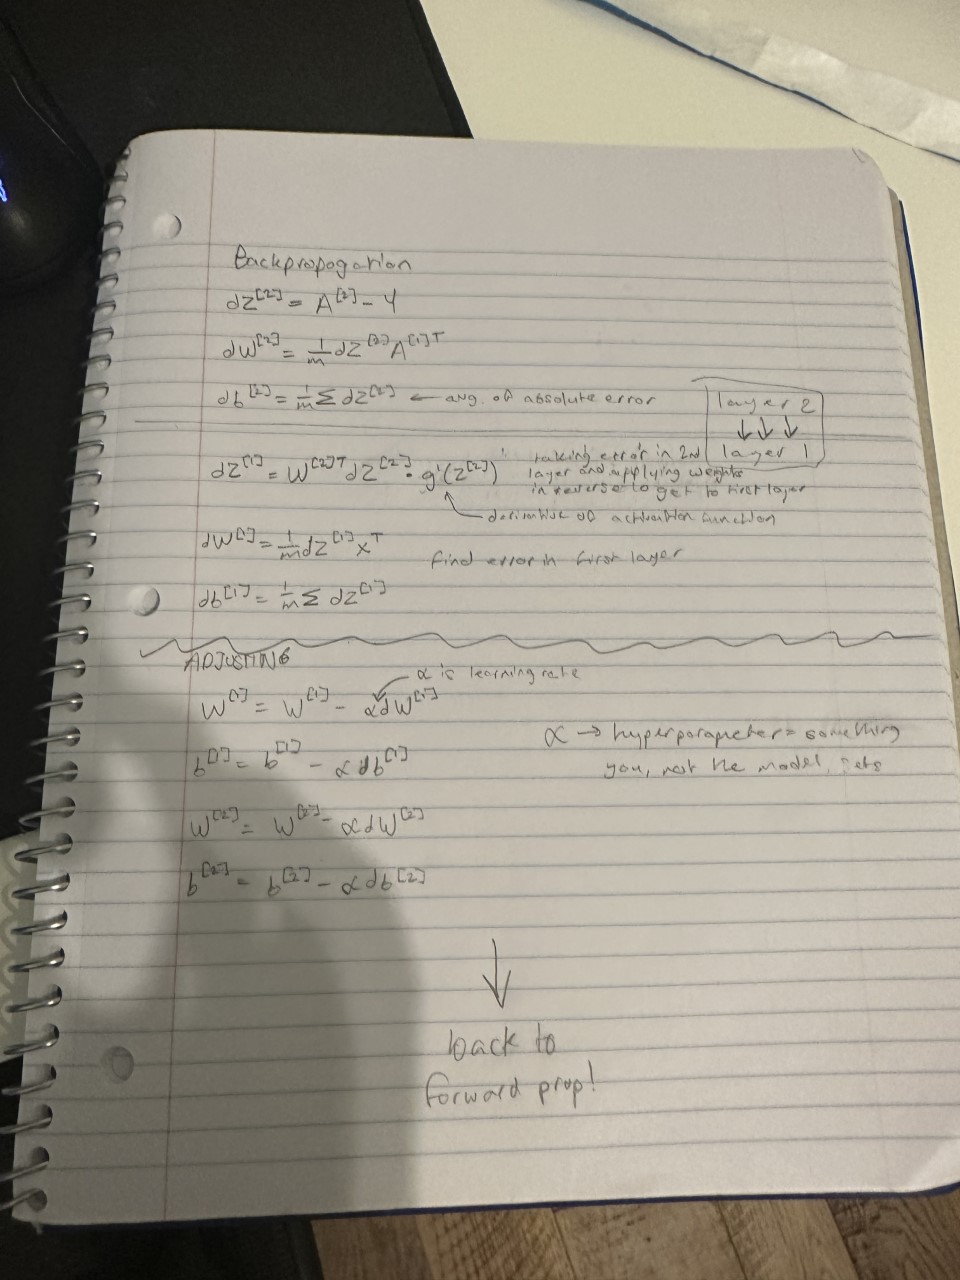 Backpropogation
dZ^[2] = A^[2] - Y
dW^[2] = 1/m dZ^[2] A^[1]T
db^[2] = 1/m Σ dZ^[2] ← avg. of absolute error
layer 2
↓↓↓
layer 1
dZ^[1] = W^[2]T dZ^[2] · g'(Z^[2])
taking error in 2nd
layer and applying weights
in reverse to get to first layer
derivative of activation function
dW^[1] = 1/m dZ^[1] X^T
find error in first layer
db^[1] = 1/m Σ dZ^[1]
ADJUSTING
α is learning rate
W^[1] = W^[1] - αdW^[1]
α → hyperparameter = something
you, not the model, sets
b^[1] = b^[1] - αdb^[1]
W^[2] = W^[2] - αdW^[2]
b^[2] = b^[2] - αdb^[2]
↓
back to
forward prop!